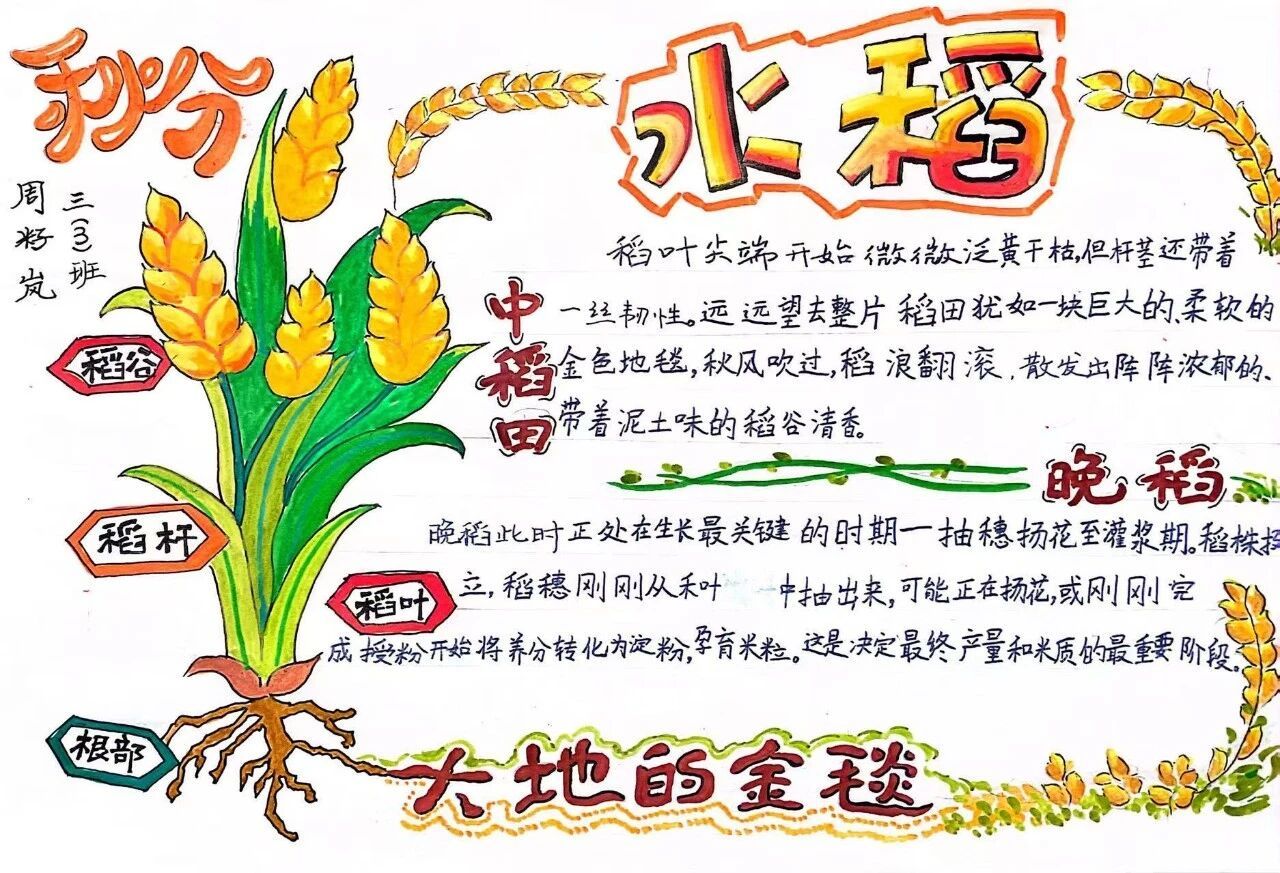 秋分
水稻
三(3)班
周籽岚
稻叶尖端开始微微泛黄干枯,但杆茎还带着
一丝韧性。远远望去整片稻田犹如一块巨大的、柔软的
金色地毯,秋风吹过,稻浪翻滚,散发出阵阵浓郁的、
带着泥土味的稻谷清香。
中稻田
稻谷
晚稻
晚稻此时正处在生长最关键的时期一抽穗扬花至灌浆期。稻株挺
立,稻穗刚刚从禾叶中抽出来,可能正在扬花,或刚刚完
成授粉开始将养分转化为淀粉,孕育米粒。这是决定最终产量和米质的最重要阶段。
稻杆
稻叶
根部
大地的金毯